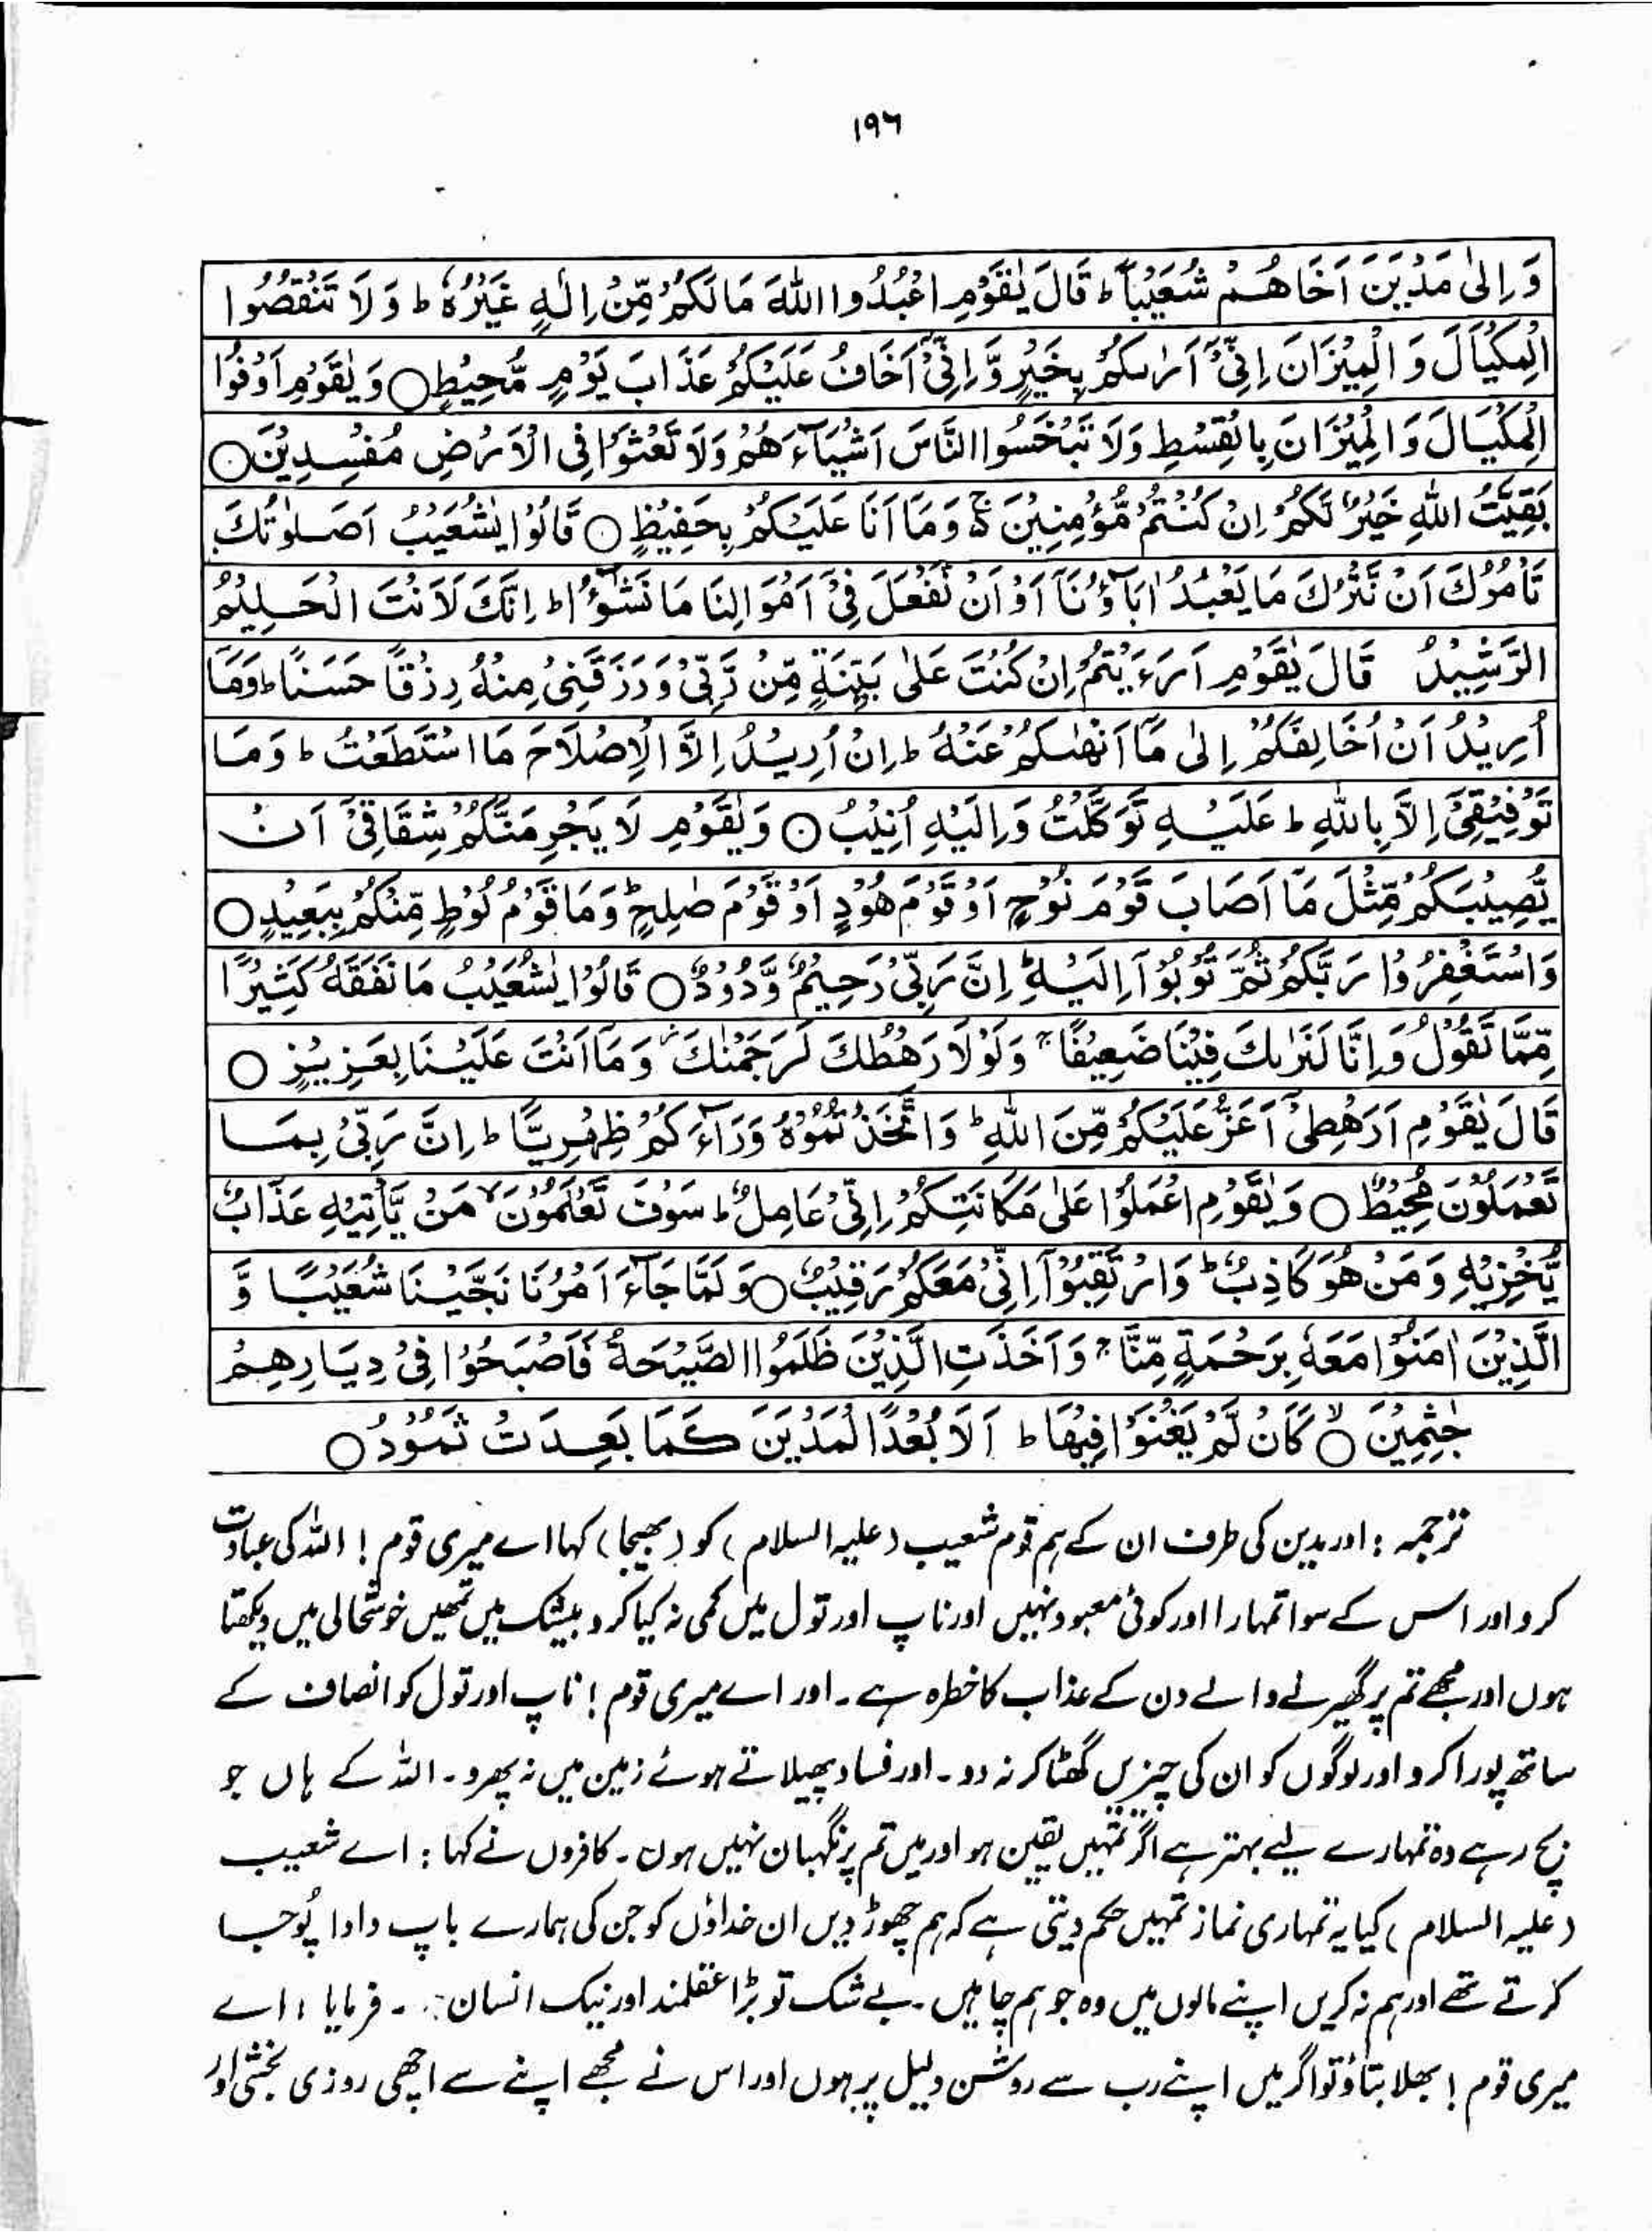 ۱۹۶
وَ اِلٰی مَدْیَنَ اَخَاهُمْ شُعَیْبًا ؕ قَالَ یٰقَوْمِ اعْبُدُوا اللّٰهَ مَا لَكُمْ مِّنْ اِلٰهٍ غَیْرُهٗ ؕ وَ لَا تَنْقُصُوا
الْمِكْیَالَ وَ الْمِیْزَانَ اِنِّیْۤ اَرٰىكُمْ بِخَیْرٍ وَّ اِنِّیْۤ اَخَافُ عَلَیْكُمْ عَذَابَ یَوْمٍ مُّحِیْطٍ ○ وَ یٰقَوْمِ اَوْفُوا
الْمِكْیَالَ وَ الْمِیْزَانَ بِالْقِسْطِ وَلَا تَبْخَسُوا النَّاسَ اَشْیَآءَهُمْ وَلَا تَعْثَوْا فِی الْاَرْضِ مُفْسِدِیْنَ ○
بَقِیَّتُ اللّٰهِ خَیْرٌ لَّكُمْ اِنْ كُنْتُمْ مُّؤْمِنِیْنَ ۚ۬ وَ مَاۤ اَنَا عَلَیْكُمْ بِحَفِیْظٍ ○ قَالُوْا یٰشُعَیْبُ اَصَلٰوتُكَ
تَاْمُرُكَ اَنْ نَّتْرُكَ مَا یَعْبُدُ اٰبَآؤُنَاۤ اَوْ اَنْ نَّفْعَلَ فِیْۤ اَمْوَالِنَا مَا نَشٰٓؤُا ؕ اِنَّكَ لَاَنْتَ الْحَلِیْمُ
الرَّشِیْدُ قَالَ یٰقَوْمِ اَرَءَیْتُمْ اِنْ كُنْتُ عَلٰی بَیِّنَةٍ مِّنْ رَّبِّیْ وَ رَزَقَنِیْ مِنْهُ رِزْقًا حَسَنًا ؕ وَمَاۤ
اُرِیْدُ اَنْ اُخَالِفَكُمْ اِلٰی مَاۤ اَنْهٰىكُمْ عَنْهُ ؕ اِنْ اُرِیْدُ اِلَّا الْاِصْلَاحَ مَا اسْتَطَعْتُ ؕ وَ مَا
تَوْفِیْقِیْۤ اِلَّا بِاللّٰهِ ؕ عَلَیْهِ تَوَكَّلْتُ وَ اِلَیْهِ اُنِیْبُ ○ وَ یٰقَوْمِ لَا یَجْرِمَنَّكُمْ شِقَاقِیْۤ اَنْ
یُّصِیْبَكُمْ مِّثْلُ مَاۤ اَصَابَ قَوْمَ نُوْحٍ اَوْ قَوْمَ هُوْدٍ اَوْ قَوْمَ صٰلِحٍ ؕ وَ مَا قَوْمُ لُوْطٍ مِّنْكُمْ بِبَعِیْدٍ ○
وَ اسْتَغْفِرُوْا رَبَّكُمْ ثُمَّ تُوْبُوْۤا اِلَیْهِ ؕ اِنَّ رَبِّیْ رَحِیْمٌ وَّدُوْدٌ ○ قَالُوْا یٰشُعَیْبُ مَا نَفْقَهُ كَثِیْرًا
مِّمَّا تَقُوْلُ وَ اِنَّا لَنَرٰىكَ فِیْنَا ضَعِیْفًا ۚ وَ لَوْ لَا رَهْطُكَ لَرَجَمْنٰكَ ؗ وَ مَاۤ اَنْتَ عَلَیْنَا بِعَزِیْزٍ ○
قَالَ یٰقَوْمِ اَرَهْطِیْۤ اَعَزُّ عَلَیْكُمْ مِّنَ اللّٰهِ ؕ وَ اتَّخَذْتُمُوْهُ وَرَآءَكُمْ ظِهْرِیًّا ؕ اِنَّ رَبِّیْ بِمَا
تَعْمَلُوْنَ مُحِیْطٌ ○ وَ یٰقَوْمِ اعْمَلُوْا عَلٰی مَكَانَتِكُمْ اِنِّیْ عَامِلٌ ؕ سَوْفَ تَعْلَمُوْنَ ۙ مَنْ یَّاْتِیْهِ عَذَابٌ
یُّخْزِیْهِ وَ مَنْ هُوَ كَاذِبٌ ؕ وَ ارْتَقِبُوْۤا اِنِّیْ مَعَكُمْ رَقِیْبٌ ○ وَ لَمَّا جَآءَ اَمْرُنَا نَجَّیْنَا شُعَیْبًا وَّ
الَّذِیْنَ اٰمَنُوْا مَعَهٗ بِرَحْمَةٍ مِّنَّا ۚ وَ اَخَذَتِ الَّذِیْنَ ظَلَمُوا الصَّیْحَةُ فَاَصْبَحُوْا فِیْ دِیَارِهِمْ
جٰثِمِیْنَ ○ۙ كَاَنْ لَّمْ یَغْنَوْا فِیْهَا ؕ اَلَا بُعْدًا لِّمَدْیَنَ كَمَا بَعِدَتْ ثَمُوْدُ ○
ترجمہ : اور مدین کی طرف ان کے ہم قوم شعیب (علیہ السلام) کو (بھیجا) کہا اے میری قوم ! اللہ کی عبادت
کرو اور اس کے سوا تمہارا اور کوئی معبود نہیں اور ناپ اور تول میں کمی نہ کیا کرو بیشک میں تمھیں خوشحالی میں دیکھتا
ہوں اور مجھے تم پر گھیرنے والے دن کے عذاب کا خطرہ ہے۔ اور اے میری قوم ! ناپ اور تول کو انصاف کے
ساتھ پورا کرو اور لوگوں کو ان کی چیزیں گھٹا کر نہ دو۔ اور فساد پھیلاتے ہوئے زمین میں نہ پھرو۔ اللہ کے ہاں جو
بچ رہے وہ تمہارے لیے بہتر ہے اگر تمہیں یقین ہو اور میں تم پر نگہبان نہیں ہوں۔ کافروں نے کہا : اے شعیب
(علیہ السلام) کیا یہ تمہاری نماز تمہیں حکم دیتی ہے کہ ہم چھوڑ دیں ان خداؤں کو جن کی ہمارے باپ دادا پُوجا
کرتے تھے اور ہم نہ کریں اپنے مالوں میں وہ جو ہم چاہیں۔ بے شک تو بڑا عقلمند اور نیک انسان ۔ فرمایا : اے
میری قوم ! بھلا بتاؤ تو اگر میں اپنے رب سے روشن دلیل پر ہوں اور اس نے مجھے اپنے سے اچھی روزی بخشی اور